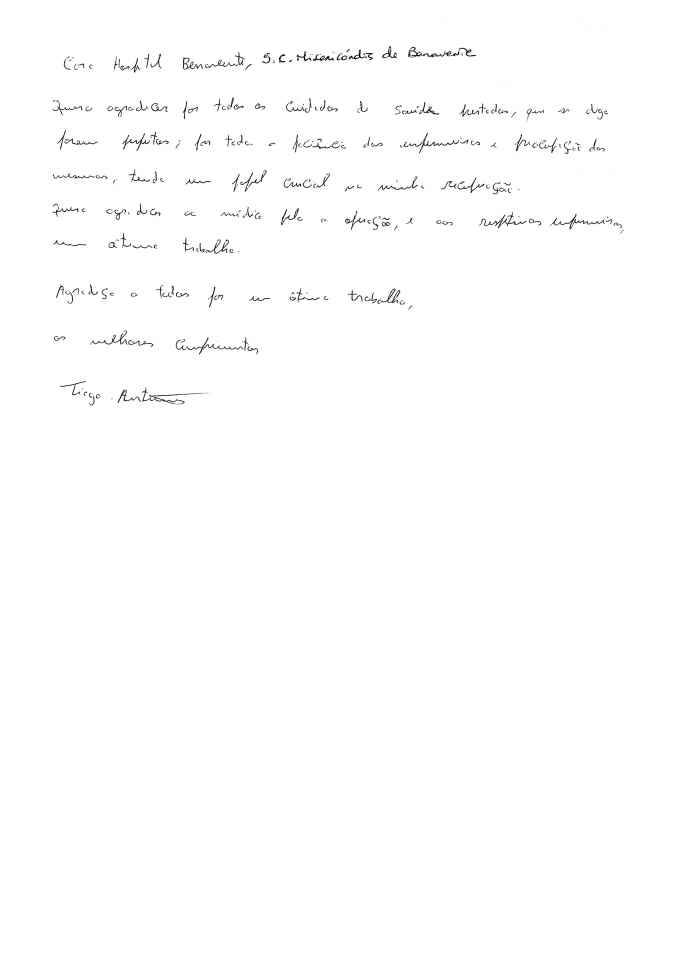 Caro Hospital Benavente, S.C. Misericórdia de Benavente
Quero agradecer por todos os Cuidados de Saúde prestados, que se diga
foram perfeitos; por toda a paciência dos enfermeiros e preocupação dos
mesmos, tendo um papel crucial na minha recuperação.
Quero agradecer ao médico pela a operação, e aos respetivos enfermeiros,
um ótimo trabalho.
Agradeço a todos por um ótimo trabalho,
os melhores cumprimentos
Tiago